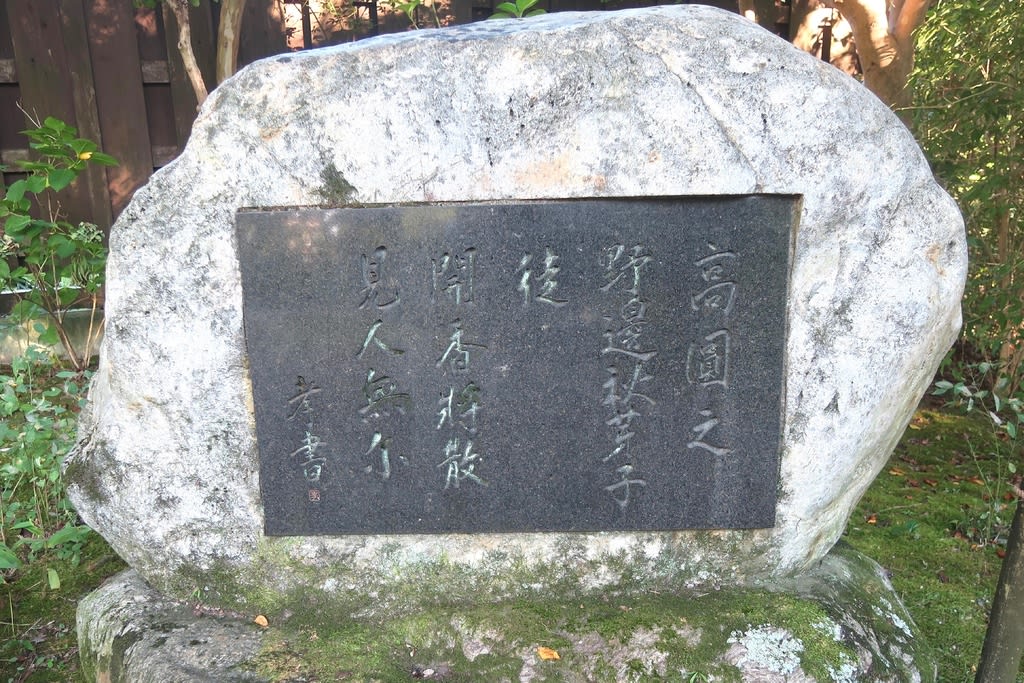 高圓之
野邊秋芽子
徒
開香將散
見人無尓
孝書